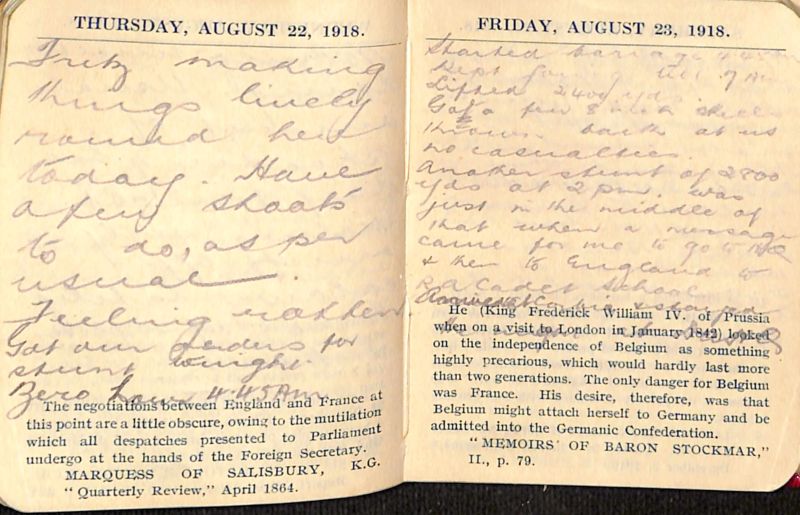 THURSDAY, AUGUST 22, 1918.
Fritz making
things lively
round here
today. Have
a few shoots
to do, as per
usual.
Feeling rotten
Got our orders for
stunt tonight.
Zero hour 4.45 Am
The negotiations between England and France at
this point are a little obscure, owing to the mutilation
which all despatches presented to Parliament
undergo at the hands of the Foreign Secretary.
MARQUESS OF SALISBURY, K.G.
"Quarterly Review," April 1864.
FRIDAY, AUGUST 23, 1918.
Started barrage 4.45 Am
Kept going till 7 Am
Lifted 2400 yds
Got a few 8 inch shells
thrown back at us
no casualties.
Another stunt of 2800
yds at 2 pm. was
just in the middle of
that when a message
came for me to go to HQ
& then to England to
RA Cadet School
Arrived at
He (King Frederick William IV. of Prussia
when on a visit to London in January 1842) looked
on the independence of Belgium as something
highly precarious, which would hardly last more
than two generations. The only danger for Belgium
was France. His desire, therefore, was that
Belgium might attach herself to Germany and be
admitted into the Germanic Confederation.
"MEMOIRS OF BARON STOCKMAR,"
II., p. 79.